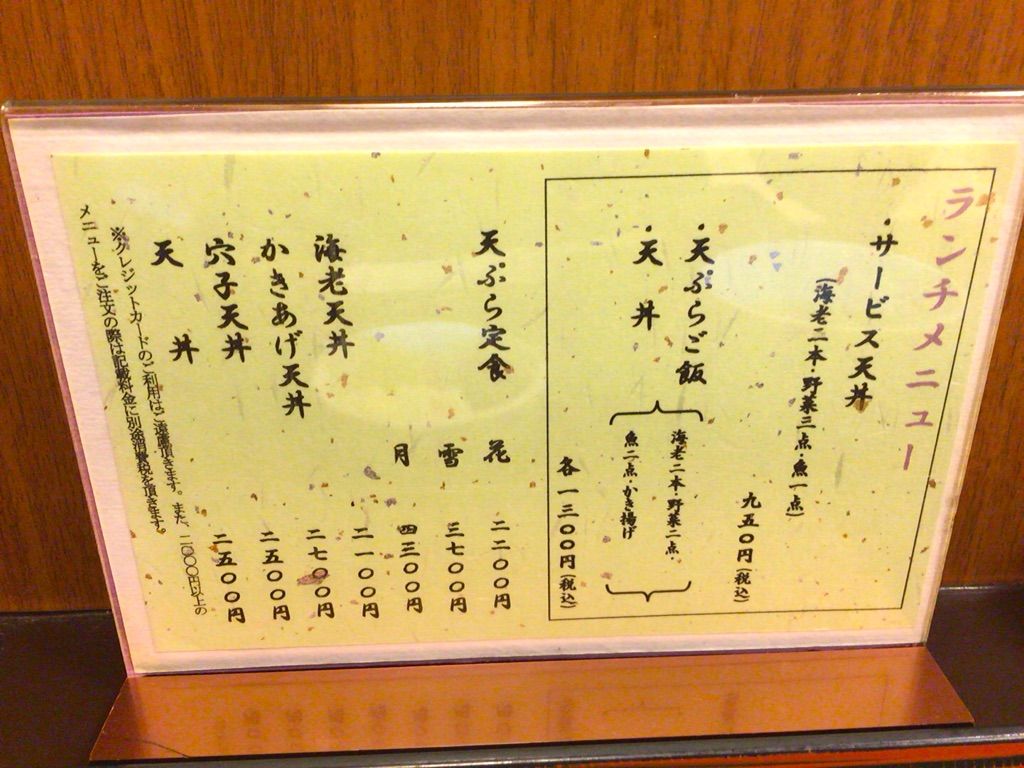 ランチメニュー
・サービス天丼
(海老二本・野菜三点・魚一点)
九五〇円(税込)
・天ぷらご飯
・天丼
海老二本・野菜二点・
魚二点・かき揚げ
各一三〇〇円(税込)
天ぷら定食 花 二二〇〇円
雪 三七〇〇円
月 四三〇〇円
海老天丼 二一〇〇円
かきあげ天丼 二七〇〇円
穴子天丼 二五〇〇円
天丼 二五〇〇円
※クレジットカードのご利用はご遠慮頂きます。また、二〇〇〇円以上の
メニューをご注文の際は記載料金に別途消費税を頂きます。